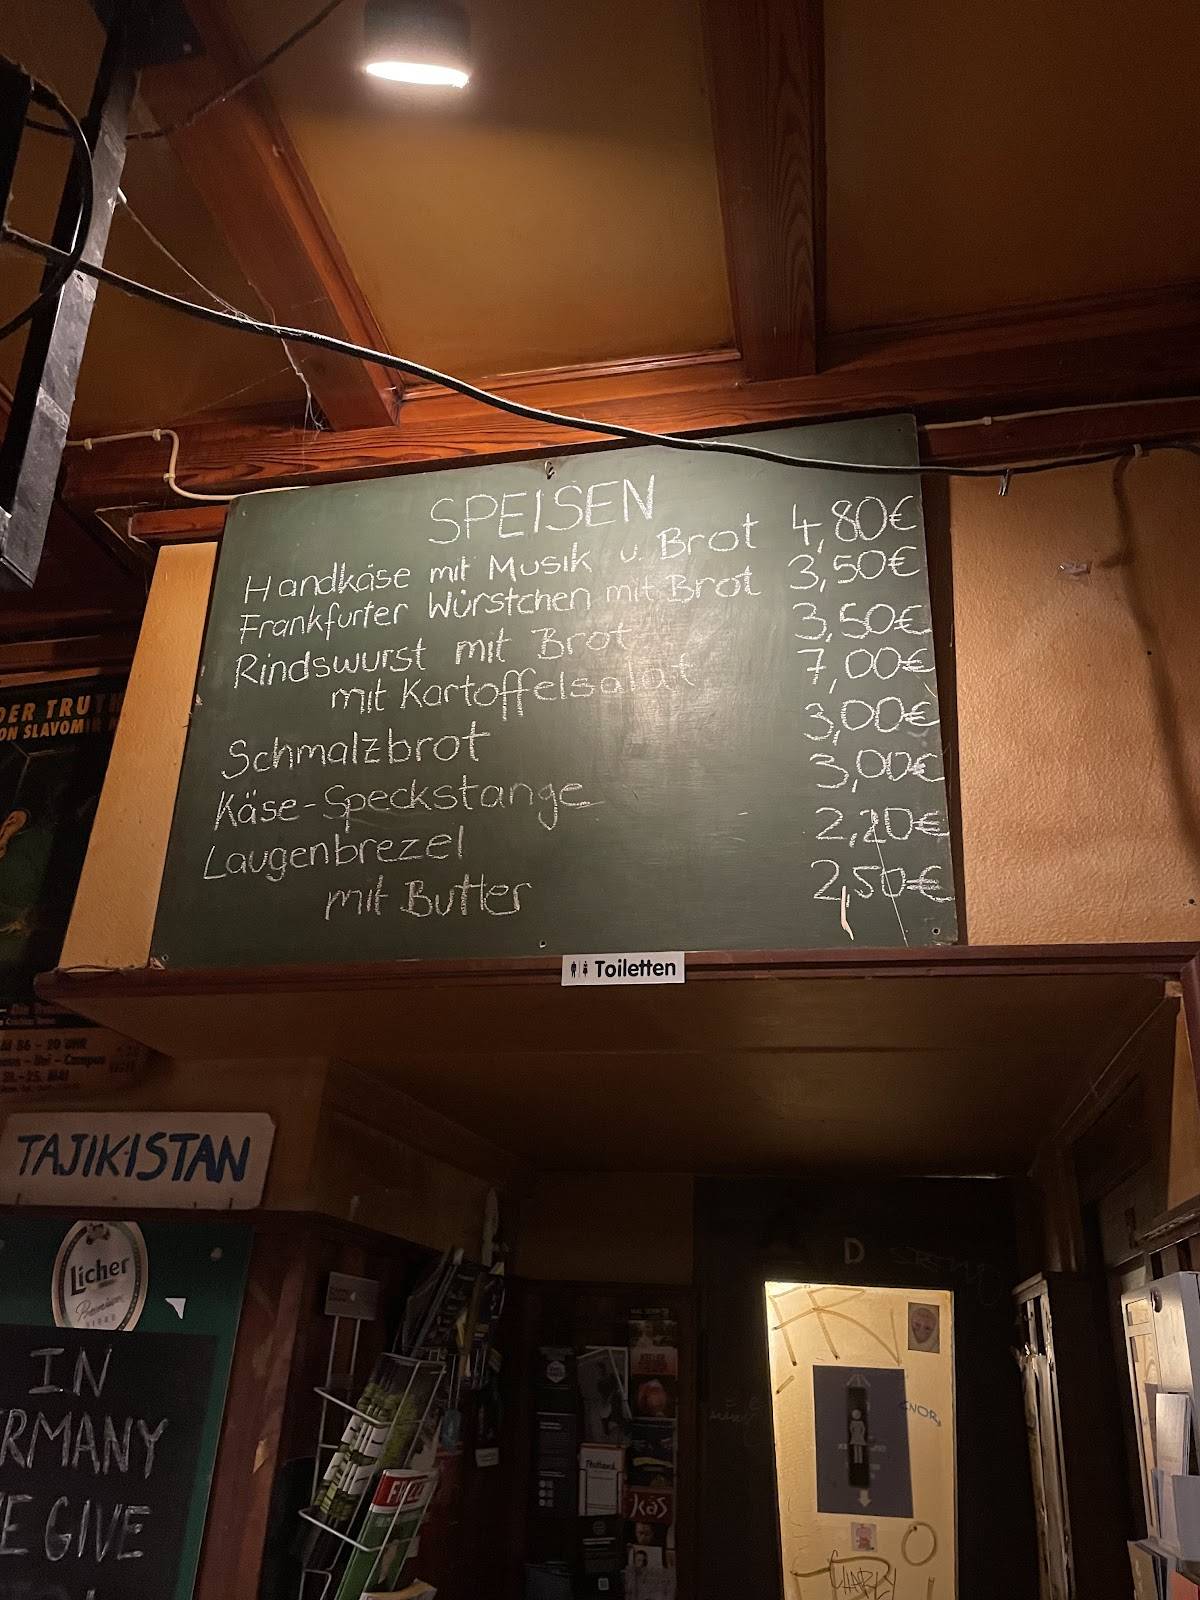 SPEISEN
Handkäse mit Musik u. Brot 4,80€
Frankfurter Würstchen mit Brot 3,50€
Rindswurst mit Brot 3,50€
mit Kartoffelsalat 7,00€
Schmalzbrot 3,00€
Käse-Speckstange 3,00€
Laugenbrezel 2,20€
mit Butter 2,50€
Toiletten
DER TRUTH
ON SLAVOM
AI 86 - 20 UHR
Uni - Campus
25. MAI
TAJIKISTAN
Licher
Premium
IN
ERMANY
E GIVE
D